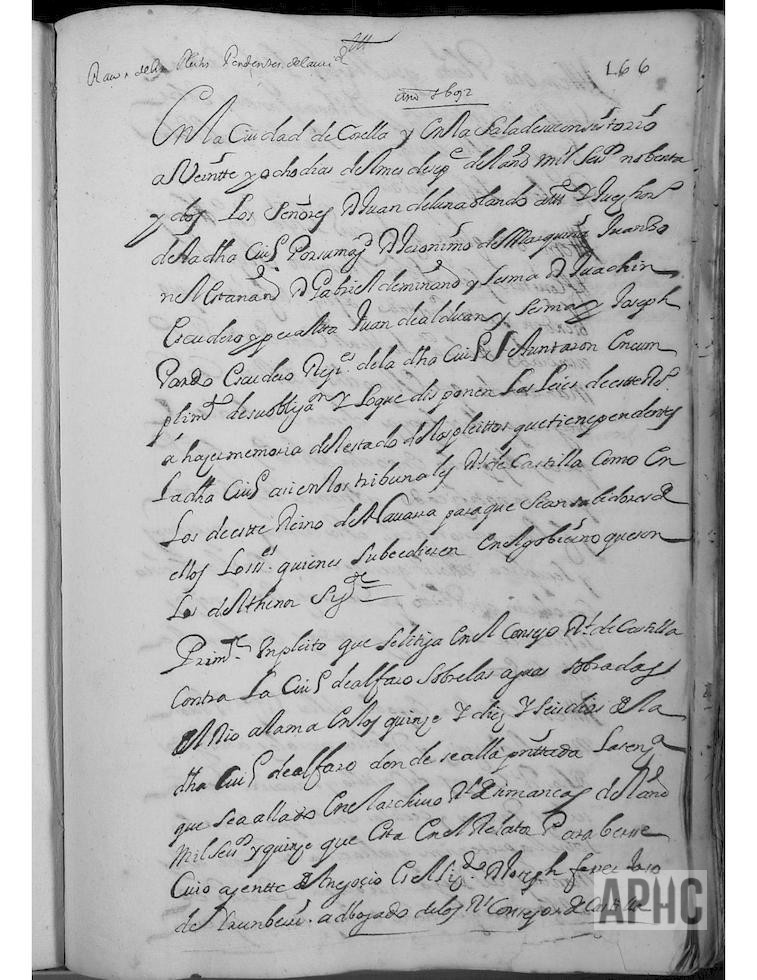 Raçon de los Pleitos Pendientes de la ciud
166
año 1692
En la Ciudad de Corella y En la Sala de su consistorio
a Veintte y ocho dias del mes de sepe del año mil Seiso nobenta
y dos Los Señores D Juan de luna olando alde Y Juez hordo
de la dha Ciud Por su magd D Jeronimo de Marquina Juan So
nel estanan D Gabriel de miñano y sesma D Juachin
Escudero y peralta Juan de alduan y Sesma y Joseph
Pardo Escudero Rejres de la dha Ciud Se Juntaron En cum
plimto de su oblijaon Y Lo que disponen Las Leies de estte Ro
á hazer memoria del estado de los pleittos que tiene pendentes
La dha Ciud asi en los tribunales Rs de Castilla Como En
Los de estte Reino de Navarra para que sean sabidores de
ellos Los ss. quienes subcedieren En el gobierno que son
Los del thenor Sigte
Primte Un pleito que se litija En el Consejo Rl de Castilla
Contra La Ciud de alfaro sobre las aguas sobradas
del Rio alama En los quinze Y diez Y seis dias de la
dha Ciud de alfaro donde se alla presenttada La sena
que sea allado En el archivo Rl de simancas del año
mil Seiso y quinze que Esta En el Relator Para berse
Cuio ajentte del negocio Es el Lizdo D Joseph ferrer
de abogado de los Rs Consejos de Castilla
APHC